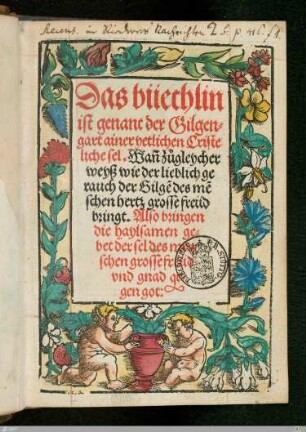 Recens. in Riederers Nachrichten 2 B. p. 
Das büechlin
ist genant der Gilgen-
gart ainer yetlichen Criste
liche sel. Wañ zůgleycher
weyß wie der lieblich ge
rauch der Gilgẽ des mẽ
schen hertz grosse freüd
bringt. Also bringen
die haylsamen ge-
bet der sel des men
schen grosse freüd
vnd gnad ge
gen got: